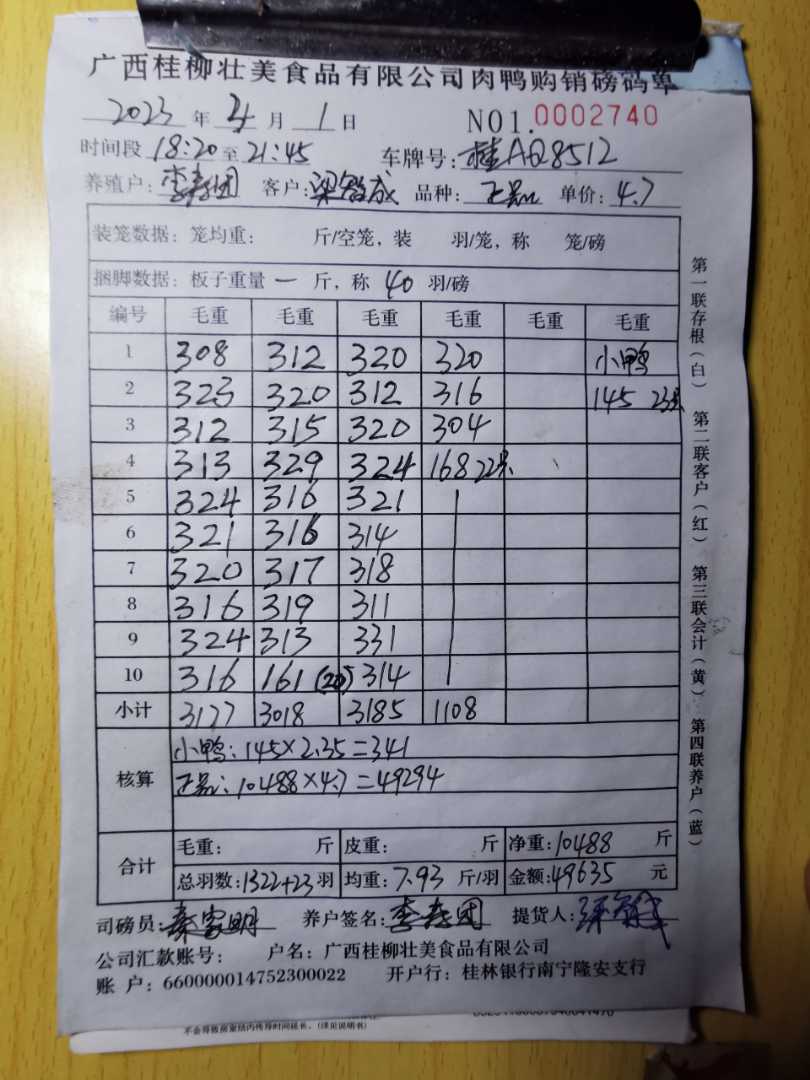 广西桂柳壮美食品有限公司肉鸭购销磅码单
2023 年 4 月 1 日 NO1.0002740
时间段 18:20 至 21:45 车牌号: 桂AQ8512
养殖户: 李寿团 客户: 梁智成 品种: 正品 单价: 4.7
装笼数据: 笼均重: 斤/空笼, 装 羽/笼, 称 笼/磅
捆脚数据: 板子重量 一 斤, 称 40 羽/磅
编号 毛重 毛重 毛重 毛重 毛重 毛重
1 308 312 320 320 小鸭
2 323 320 312 316 145 23只
3 312 315 320 304
4 313 329 324 168 22只
5 324 316 321
6 321 316 314
7 320 317 318
8 316 319 311
9 324 313 331
10 316 161 (20) 314
小计 3177 3018 3185 1108
核算
小鸭: 145×2.35=341
正品: 10488×4.7=49294
合计
毛重: 斤 皮重: 斤 净重: 10488 斤
总羽数: 1322+23 羽 均重: 7.93 斤/羽 金额: 49635 元
司磅员: 秦家明 养户签名: 李寿团 提货人:
公司汇款账号: 户名: 广西桂柳壮美食品有限公司
账 户: 660000014752300022 开户行: 桂林银行南宁隆安支行
第一联存根(白) 第二联客户(红) 第三联会计(黄) 第四联养户(蓝)
不会导致房室结内传导时间延长。(详见说明书)